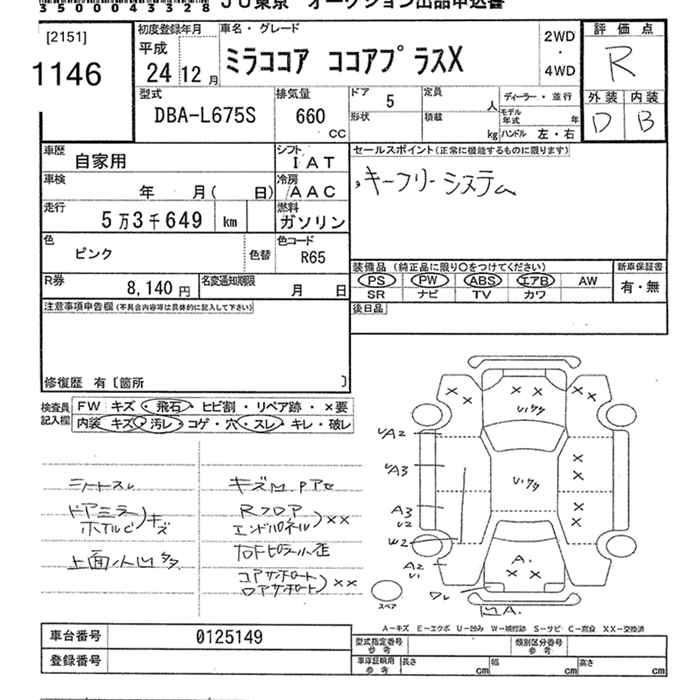 35000433328 JU東京 オークション出品申込書
[2151]
1146
初度登録年月
平成
24 12 月
車名・グレード
ミラココア ココアプラスX
2WD
・
4WD
評価点
R
外装 内装
D B
型式
DBA-L675S
排気量
660
CC
ドア
5
形状
定員
人
積載
kg
ディーラー・並行
モデル年式
年
ハンドル 左・右
車歴
自家用
シフト
IAT
車検
年 月( 日)
冷房
AAC
走行
5万3千649 km
燃料
ガソリン
色
ピンク
色替
色コード
R65
R券
8,140 円
名変通知期限
月 日
セールスポイント(正常に機能するものに限ります)
キーフリーシステム
装備品(純正品に限り○をつけてください)
PS PW ABS エアB AW
SR ナビ TV カワ
新車保証書
有・無
後日品
注意事項申告欄(不具合内容等は具体的に記入して下さい)
修復歴 有[箇所 ]
検査員
記入欄
FW キズ・飛石・ヒビ割・リペア跡・×要
内装 キズ・汚レ・コゲ・穴・スレ・キレ・破レ
シートスレ
ドアミラー
ホイルC
キズ
上面小凹多
キズM.Pアセ
Rフロア
エンドパネル
××
コアサポート
ロアサポート
××
ULク
UA2
UA3
A3
U2
W2
A2
U1
ULク
A.
A.
スペア
A−キズ E−エクボ U−凹み W−補修跡 S−サビ C−腐食 XX−交換済
車台番号
0125149
登録番号
型式指定番号
参考
類別区分番号
参考
車庫証明用
参考
長さ
cm
幅
cm
高さ
cm